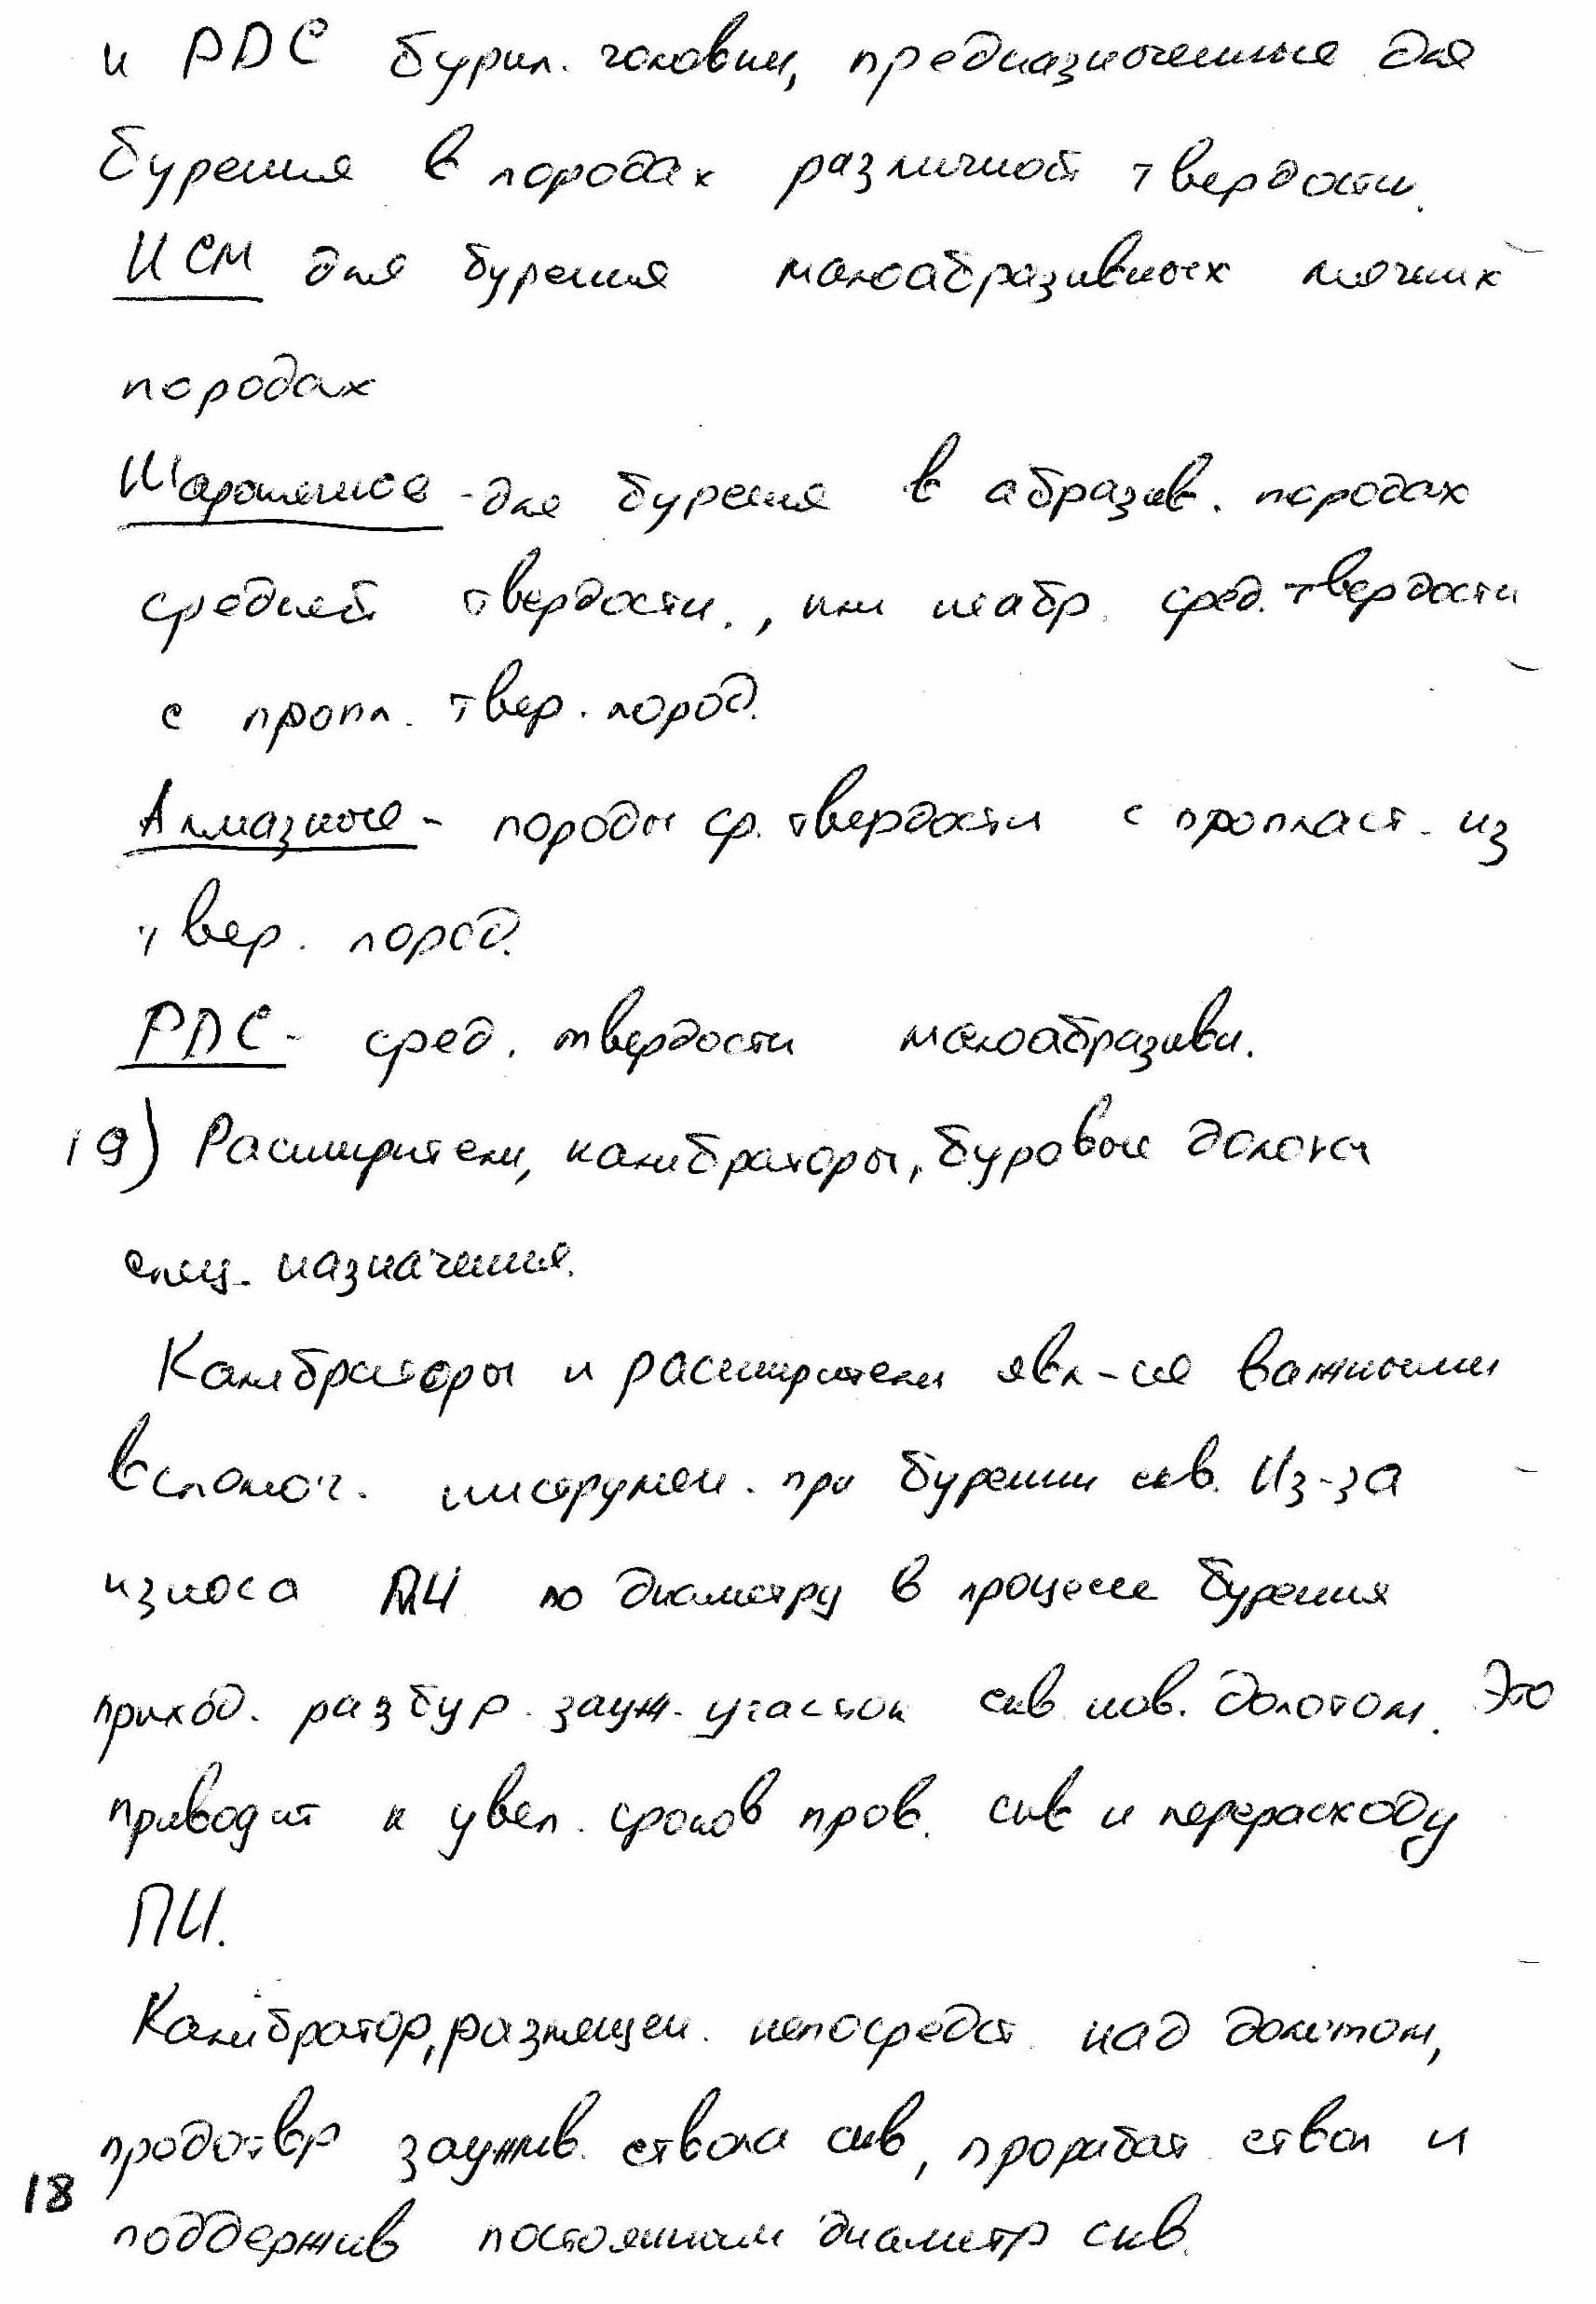 и PDC бурил. головки, предназначенные для
бурения в породах различной твердости.
ИСМ для бурения малоабразивных мягких
породах
Шарошечные - для бурения в абразив. породах
средней твердости., или неабр. сред. твердости
с пропл. твер. пород.
Алмазные - породы ср. твердости с пропласт. из
твер. пород.
PDC - сред. твердости малоабразивн.
19) Расширители, калибраторы, буровые долота
спец. назначения.
Калибраторы и расширители явл-ся важными
вспомог. инструмен. при бурении скв. Из-за
износа ПИ по диаметру в процессе бурения
приход. разбур. зауж. участок скв нов. долотом. Это
приводит к увел. сроков пров. скв и перерасходу
ПИ.
Калибратор, размещен. непосредст. над долотом,
предотвр заужив. ствола скв, прорабат ствол и
поддержив постоянным диаметр скв.
18